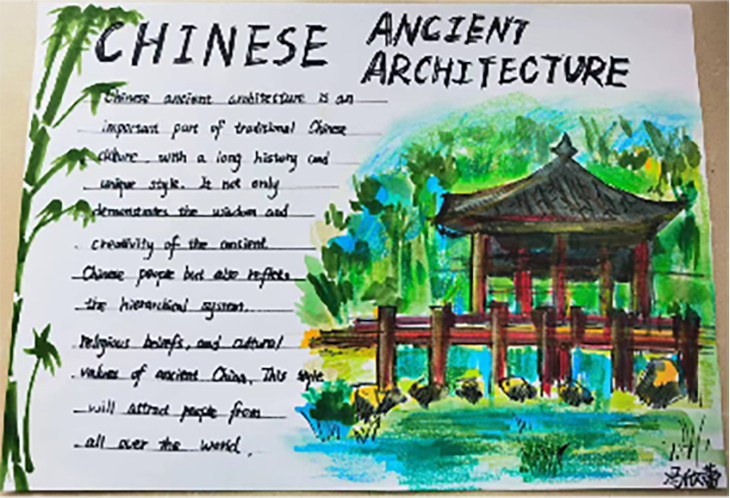 CHINESE ANCIENT
ARCHITECTURE
Chinese ancient architecture is an
important part of traditional Chinese
culture, with a long history and
unique style. It not only
demonstrates the wisdom and
creativity of the ancient
Chinese people but also reflects
the hierarchical system,
religious beliefs, and cultural
values of ancient China. This style
will attract people from
all over the world.